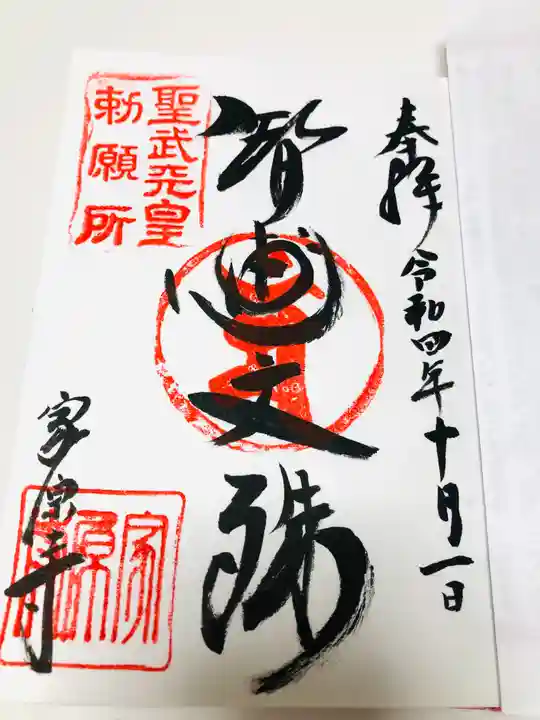 奉拝 令和四年十月一日
智恵文殊
聖武天皇
勅願所
家原寺
家原寺